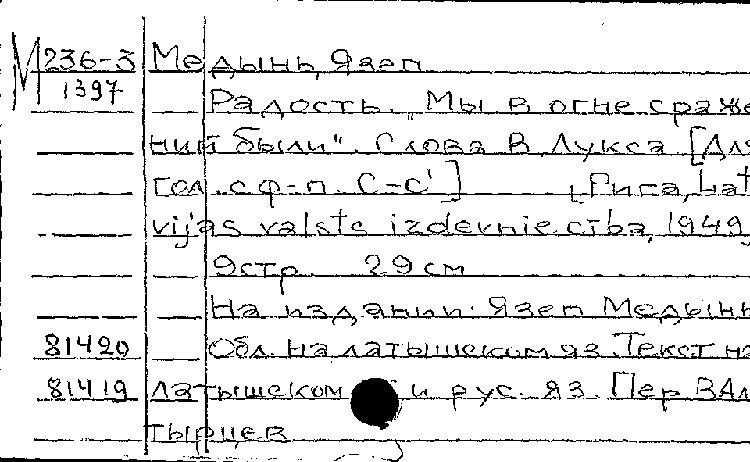 М 236-3 Медынь, Язеп
1397 Радость. „Мы в огне сраже
ний были". Слова В. Лукса. [Для
гол. с ф-п. C-c'] [Рига, Lat
vijas valsts izdevnie.ctba, 1949,
9стр. 29 см
На издании: Язеп Медынь
81420 Обл. на латышском яз. Текст на
81419 латышском и рус. яз. Пер. В. Ал
тырцев